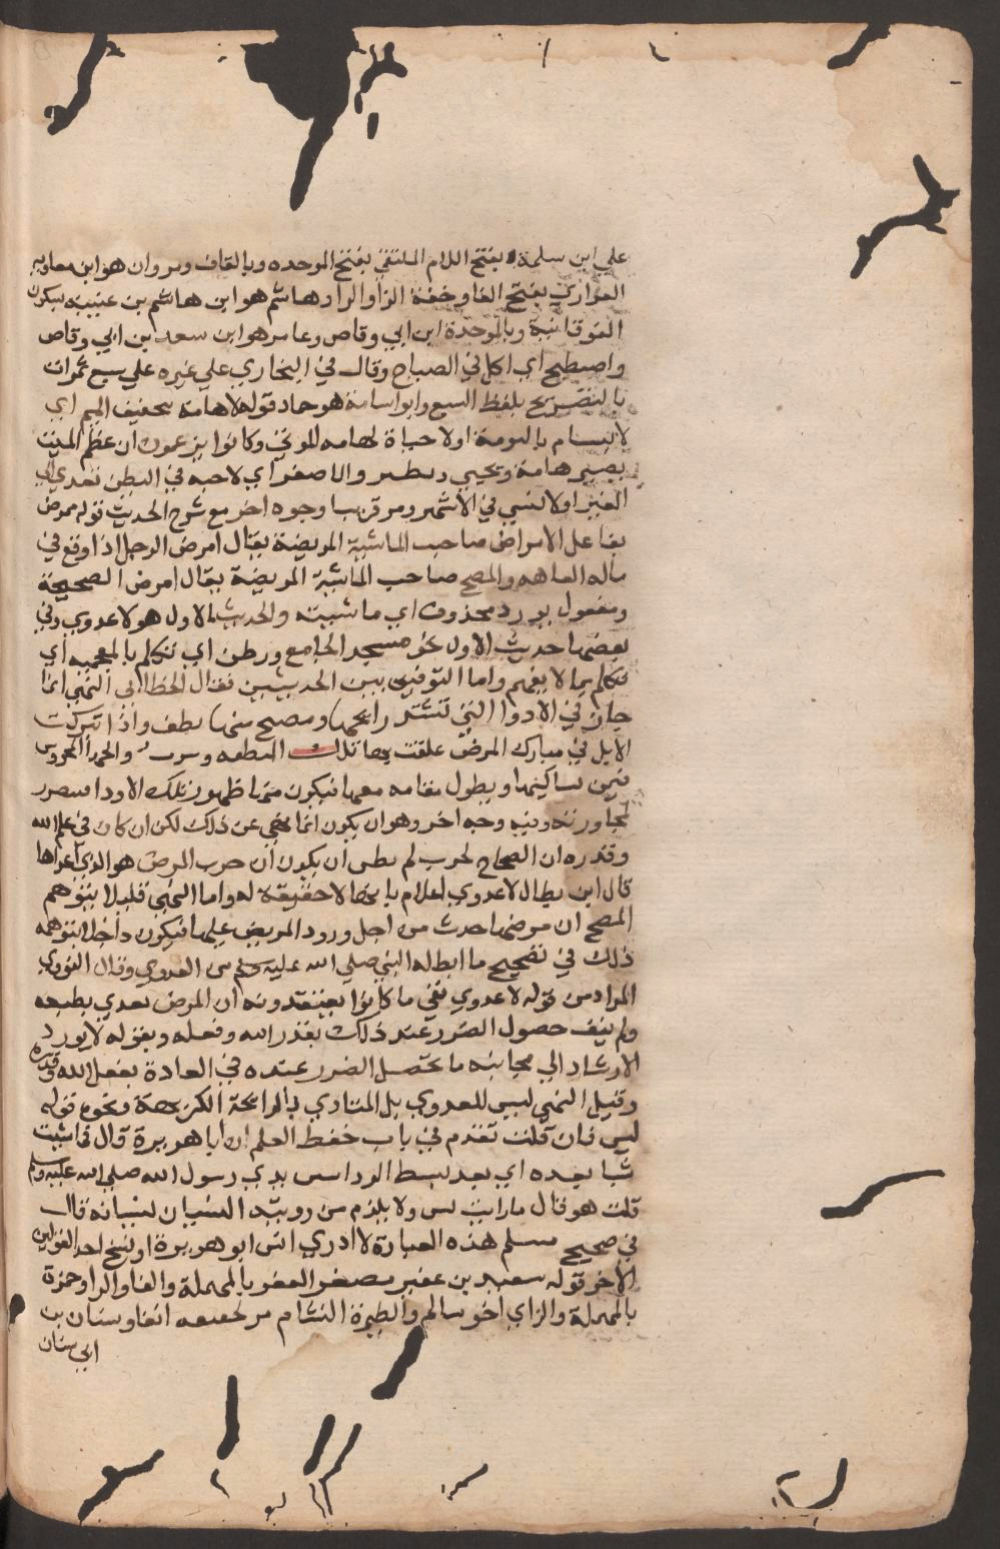 علي ابن سلمة بفتح اللام الملتقي بفتح الموحده وبالقاف ومروان هو ابن معاويه
الفزاري بفتح الفا وخفة الزا والراد هاشم هو ابن هاشم بن عتيبه بسكون
الفوقانية وبالموحدة ابن ابي وقاص وعامر هو ابن سعد بن ابي وقاص
واصطبح اي اكل في الصباح وقال في البخاري علي غيره علي سبع تمرات
بالتصريح بلفظ السبع وابو اسامة هو حماد قوله لا هامة بتخفيف الميم اي
لا تيسام بالبومة او لا حياة لهامه الموتي وكانوا يزعمون ان عظم الميت
يصير هامة ويحيي ويطير والا صفر اي لا حيه في البطن تعدي الي
الغير او لا نسي في الاشهر ومر قريبا وجوه اخر مع شرح الحديث قوله ممرض
بفاعل الامراض صاحب الماشية المريضة يقال امرض الرجل اذا وقع في
ماله العاهه والمصح صاحب الماشية المريضة يقال امرض الصحيحة
ومفعول يورد محذوف اي ماشيته والحديث الاول هو لا عدوي وفي
بعضها حديث الاول نحو مسجد الجامع ورطن اي تكلم بالعجميه اي
تكلم بما لا يفهم واما التوفيق بين الحديثين فقال الخطابي النهي انما
جا في الادوا التي تشتد رايحها ومصح منها نطف واذا تبركت
الابل في مبارك المرض علقت بها تلك النطفه و والحمرا
فيمن ساكينها ويطول مقامه معها فيكون منها ظهور تلك الادوا
لمجاورته وفيه وجه اخر وهو ان يكون انما نهي عن ذلك لكن ان كان في علم الله
وقدره ان الصحاح تجرب لم يظن ان يكون ان جرب المرض هو الذي اعداها
قال ابن بطال لا عدوي اعلام بانها لا حقيقة لها واما النهي فليلا يتوهم
المصح ان مرضها حدث من اجل ورود المريض عليها فيكون داخلا بتوهمه
ذلك في تصحيح ما ابطله النبي صلي الله عليه وسلم من العدوي وقال النووي
المراد من قوله لا عدوي نفي ما كانوا يعتقدونه ان المرض يعدي بطبعه
ولم ينف حصول الضرر عند ذلك بقدر الله وفعله وبقوله لا يورد
الارشاد الي مجانبه ما يحصل الضرر عنده في العادة بفعل الله وقدره
وقيل النهي ليس للعدوي بل للتاذي بالرايحة الكريهة ونحوه قوله
ليس فان قلت تقدم في باب حفظ العلم ان ابا هريرة قال فما نسيت
شيا بعده اي بعد بسط الردا بين يدي رسول الله صلي الله عليه وسلم
قلت هو قال ما رايت نسي ولا يلزم من روييه النسيان نسيانه قال
في صحيح مسلم هذه العبارة لا ادري انسي ابو هريرة او نسخ احد القولين
الاخر قوله سعيد بن عفير مصغر العفر بالمهملة والفا والرا وحمزة
بالمهملة والزاي اخو سالم والطيرة التشام مر تحقيقه انفا وسنان بن
ابي سنان